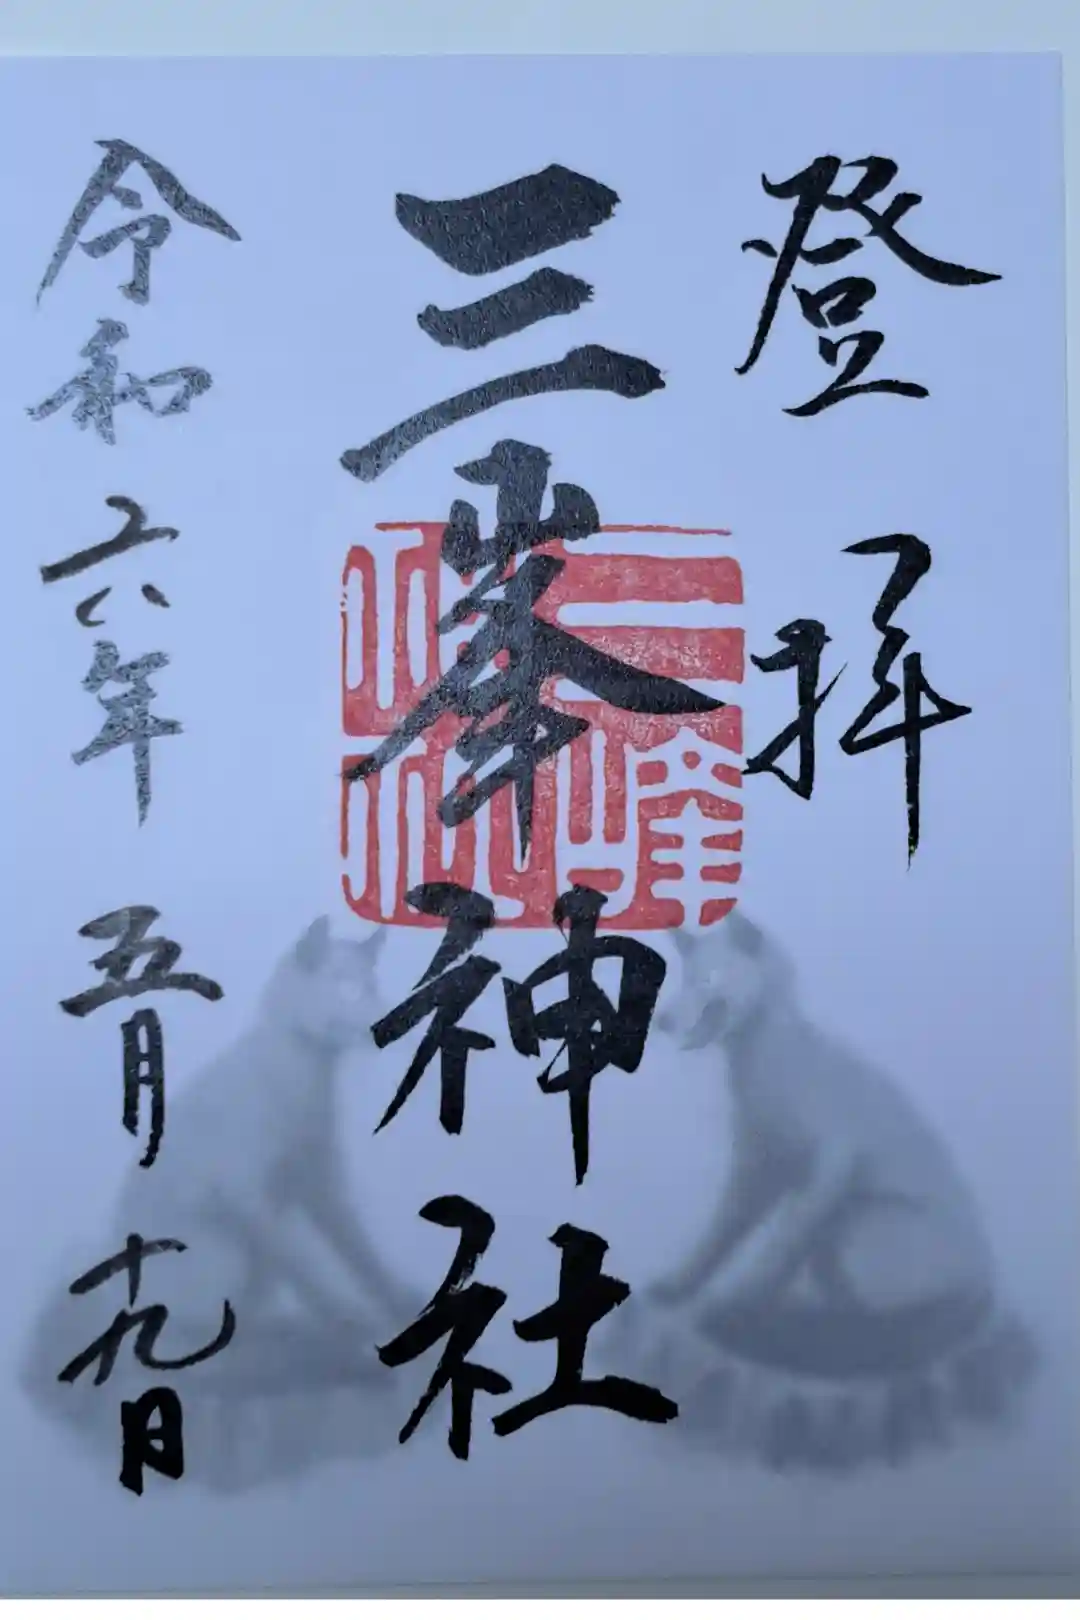 登拝
三峯神社
令和六年五月十九日